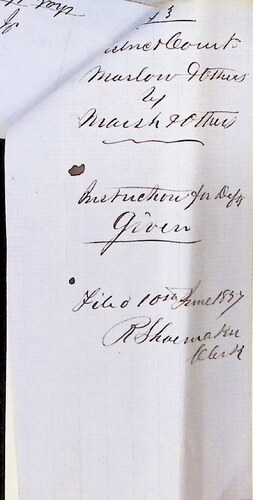 13
Court
Marlow & Others
by
Marsh & Others
Instruction for Deft
Given
Filed 10th June 1857
R Shoemaker
Clerk